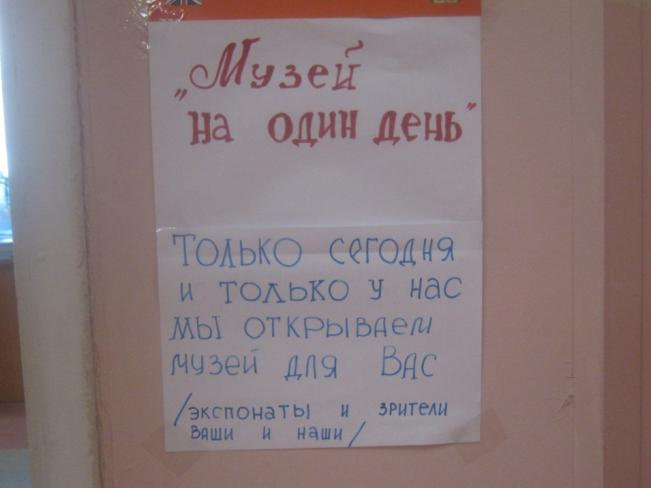 „Музей
на один день"
Только сегодня
и только у нас
мы открываем
музей для Вас
/экспонаты и зрители
Ваши и наши/